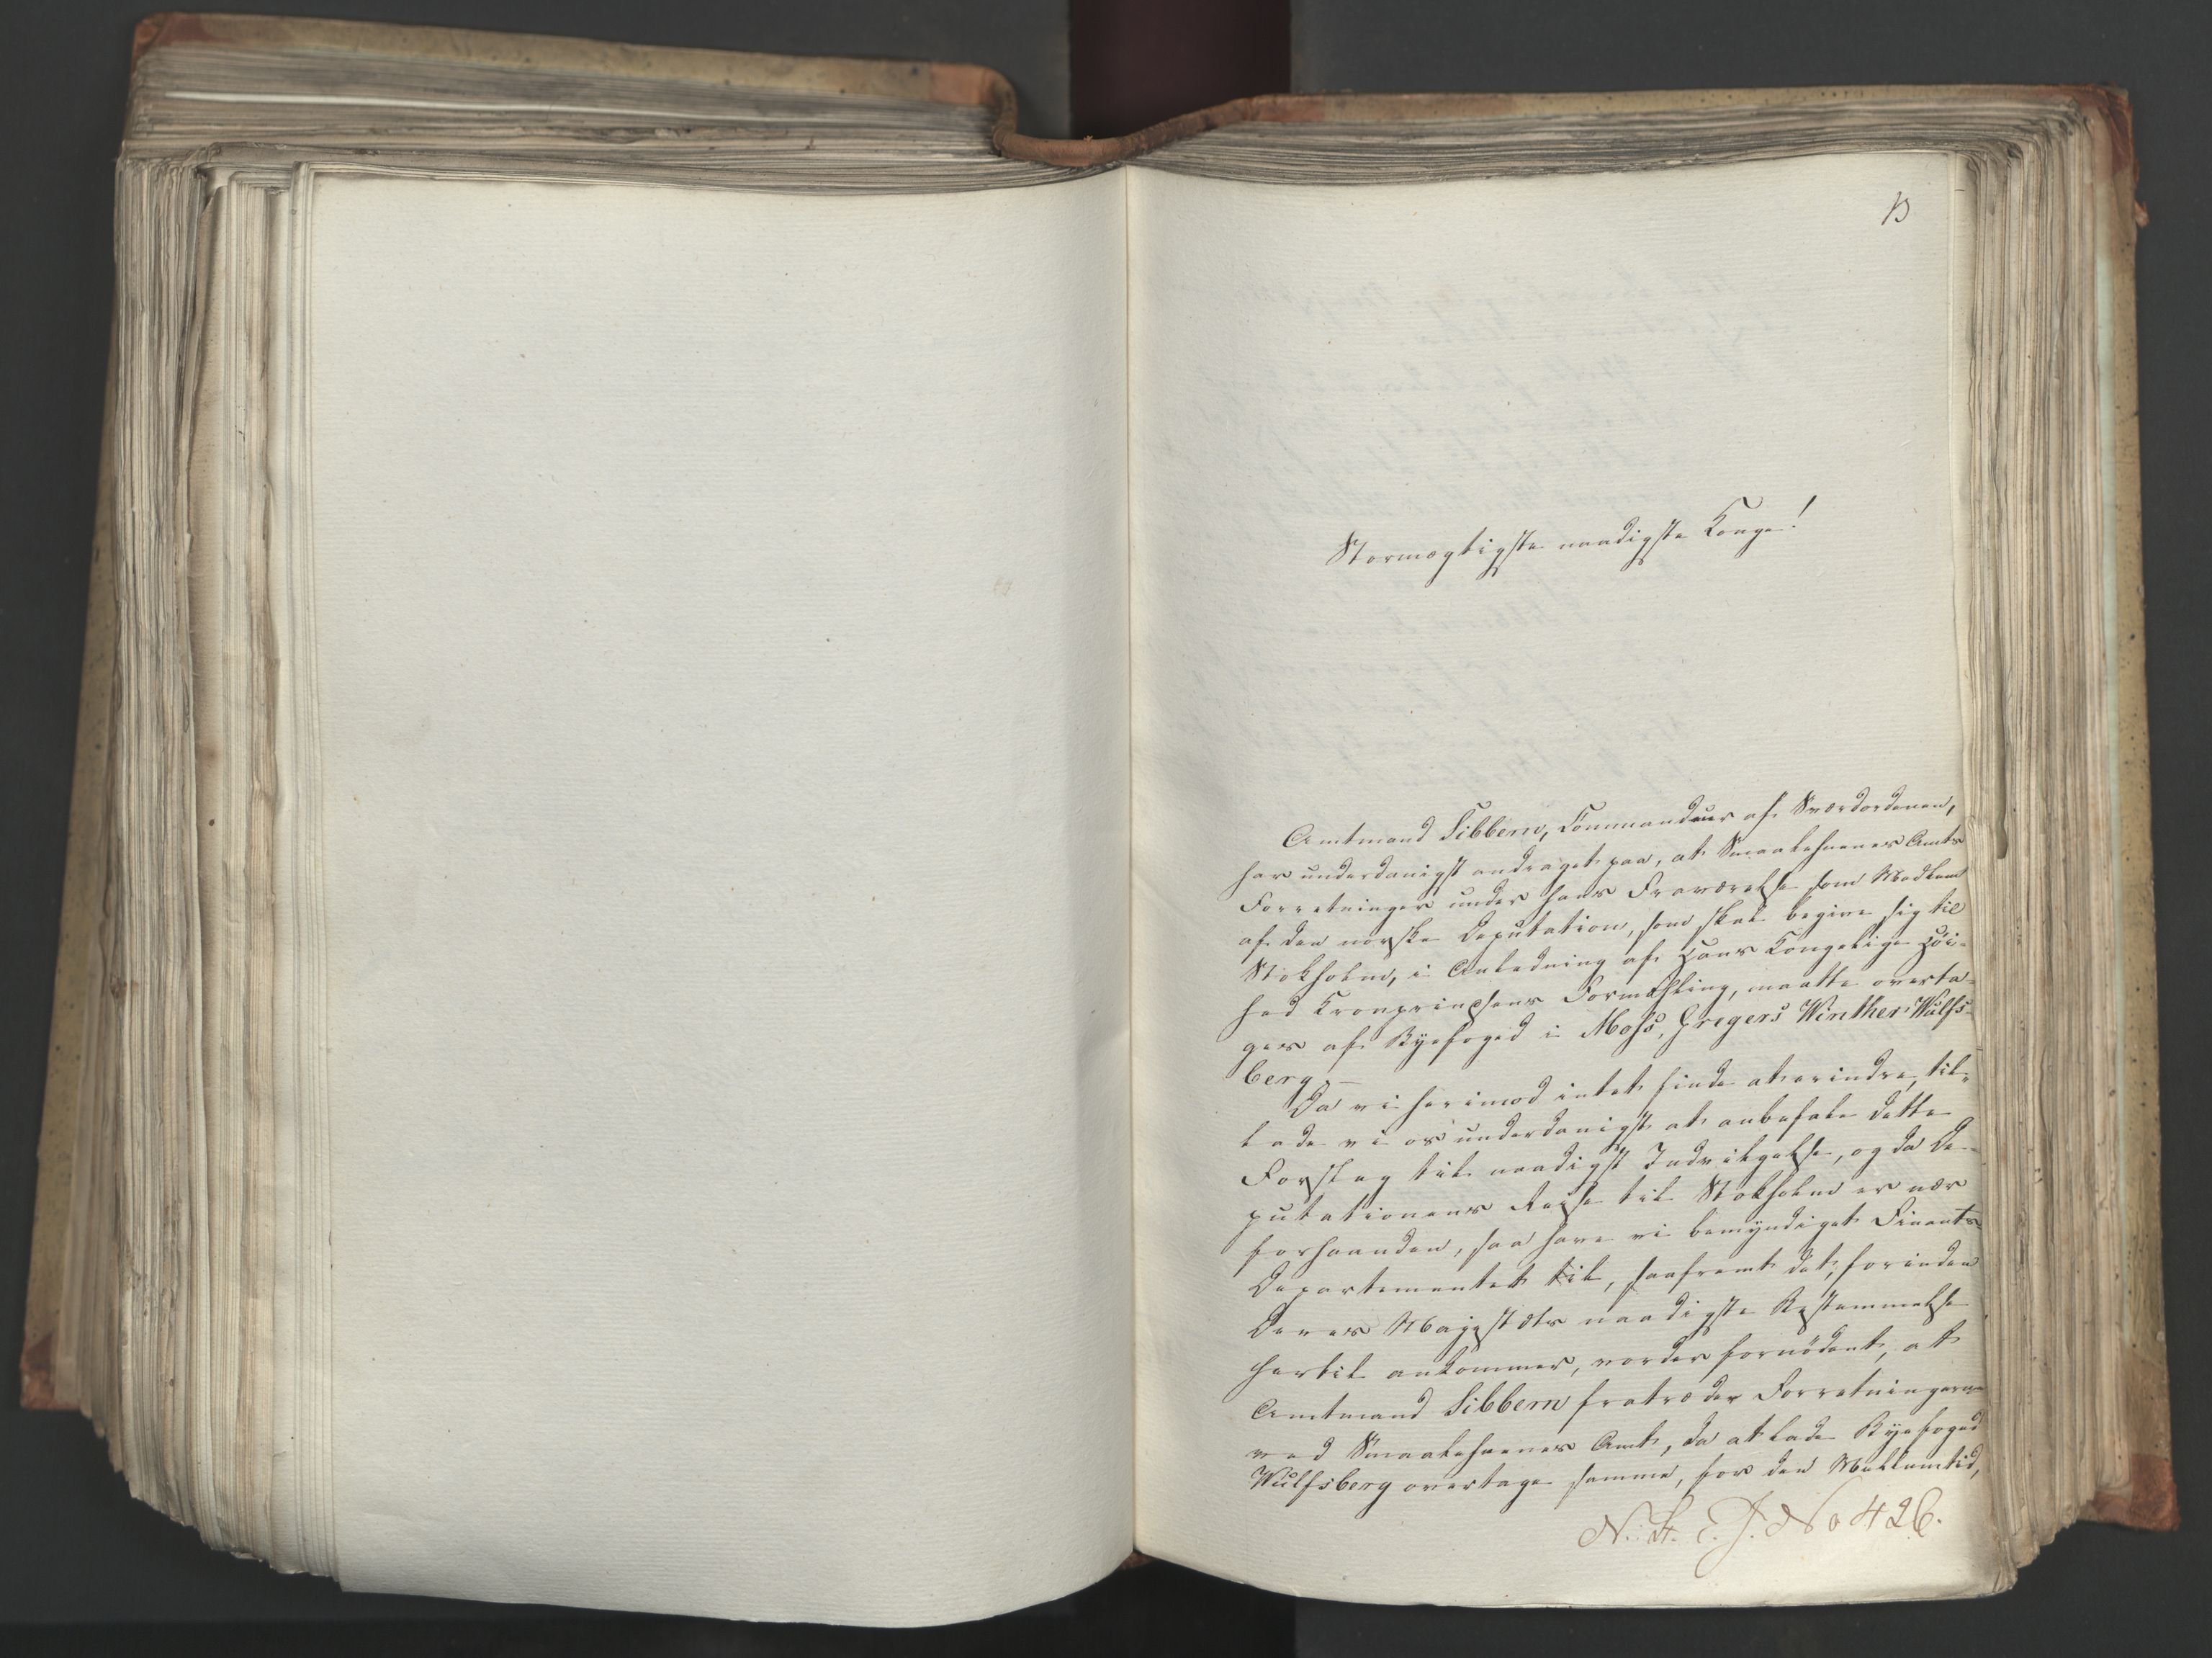 13
Stormægtigste naadigste Konge!
Amtmand Sibbern, Commandeur af Sværdordenen,
har underdanigst andraget paa, at Smaalehnenes Amts
Forretninger under hans Fraværelse som Medlem
af den norske Deputation, som skal begive sig til
Stokholm, i Anledning af Hans Kongelige Høi-
hed Kronprinsens Formæhling, maatte overta-
ges af Byefoged i Moss, Gregers Winther Wulfs-
berg. –
Da vi herimod intet finde at erindre, til-
lade vi os underdanigst at anbefale dette
Forslag til naadigst Indvilgelse, og da De-
putationens Reise til Stokholm er nær
forhaanden, saa have vi bemyndiget Finants-
Departementet til, saafremt det, forinden
Deres Majestæts naadigste Bestemmelse
hertil ankommer, vorder fornödent, at
Amtmand Sibbern fratræder Forretningerne
ved Smaalehnenes Amt, da at lade Byefoged
Wulfsberg overtage samme, for den Mellemtid,
N. St. E. J. No 426.